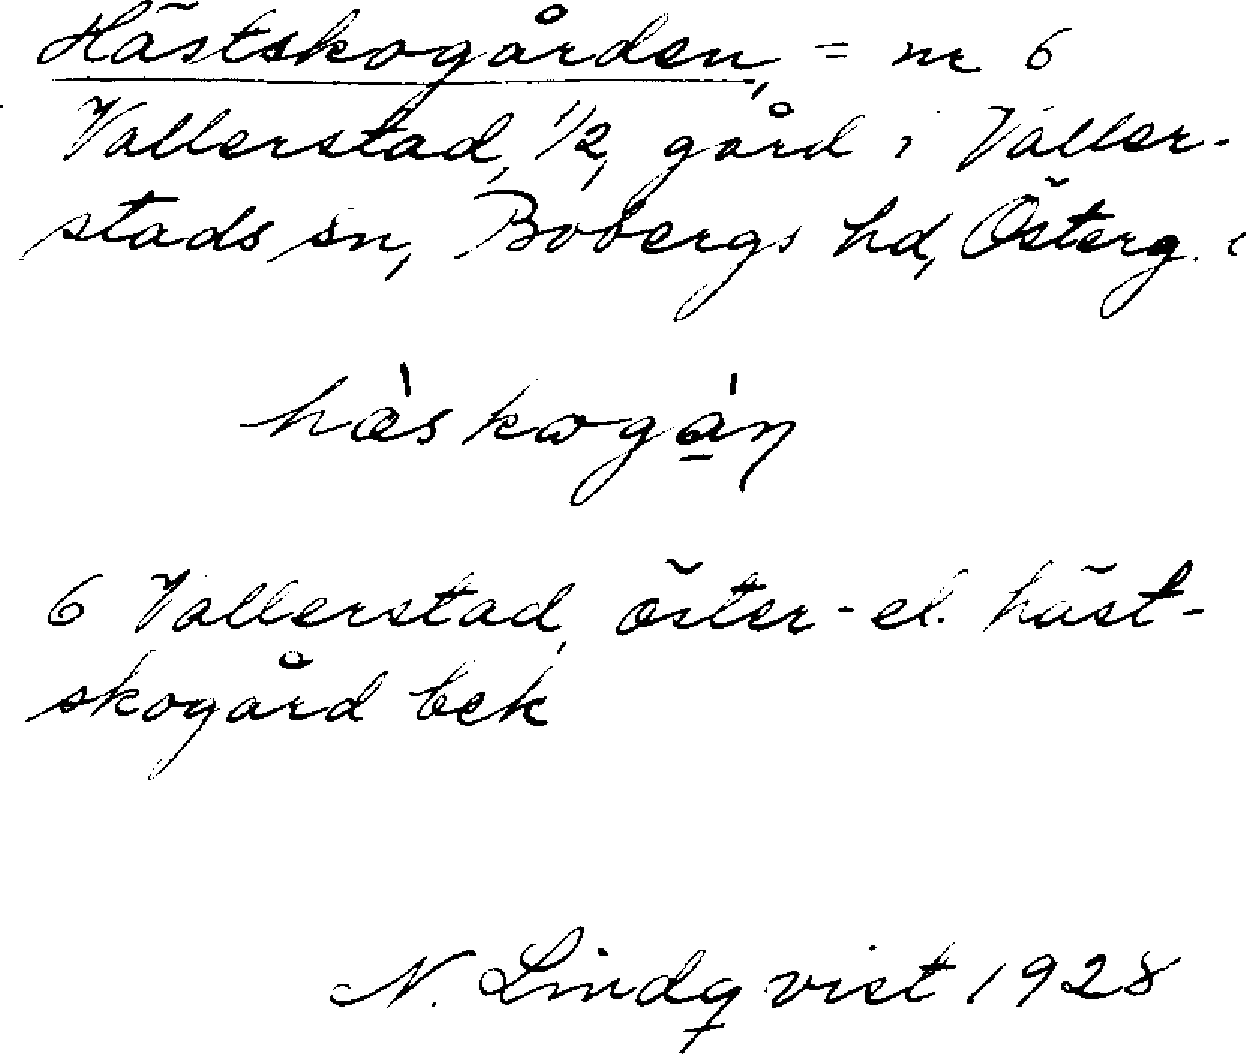 Hästskogården, = nr 6
Vallerstad, 1/2, gård i Valler-
stads sn, Bobergs hd, Österg.
6 Vallerstad, öster- el. häst-
skogård bek
N. Lindqvist 1928